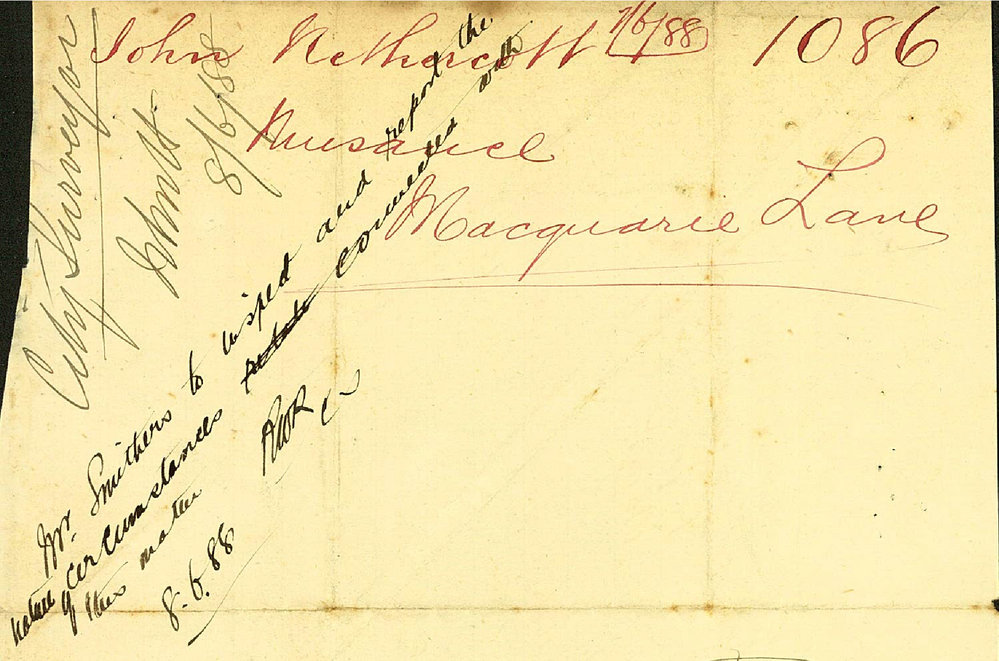 John Nethercott 7/6/88 1086
Nuisance
Macquarie Lane
City Surveyor
8/6/88
Mr. Smithers to inspect and report the
nature of circumstances connected with
this matter
8.6.88